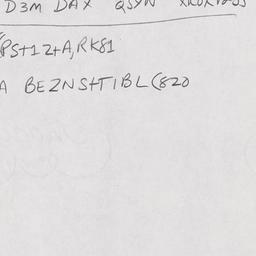 D3M DAX QSYN
PS+12+A,RK81
A BEZNS+TIBL(820